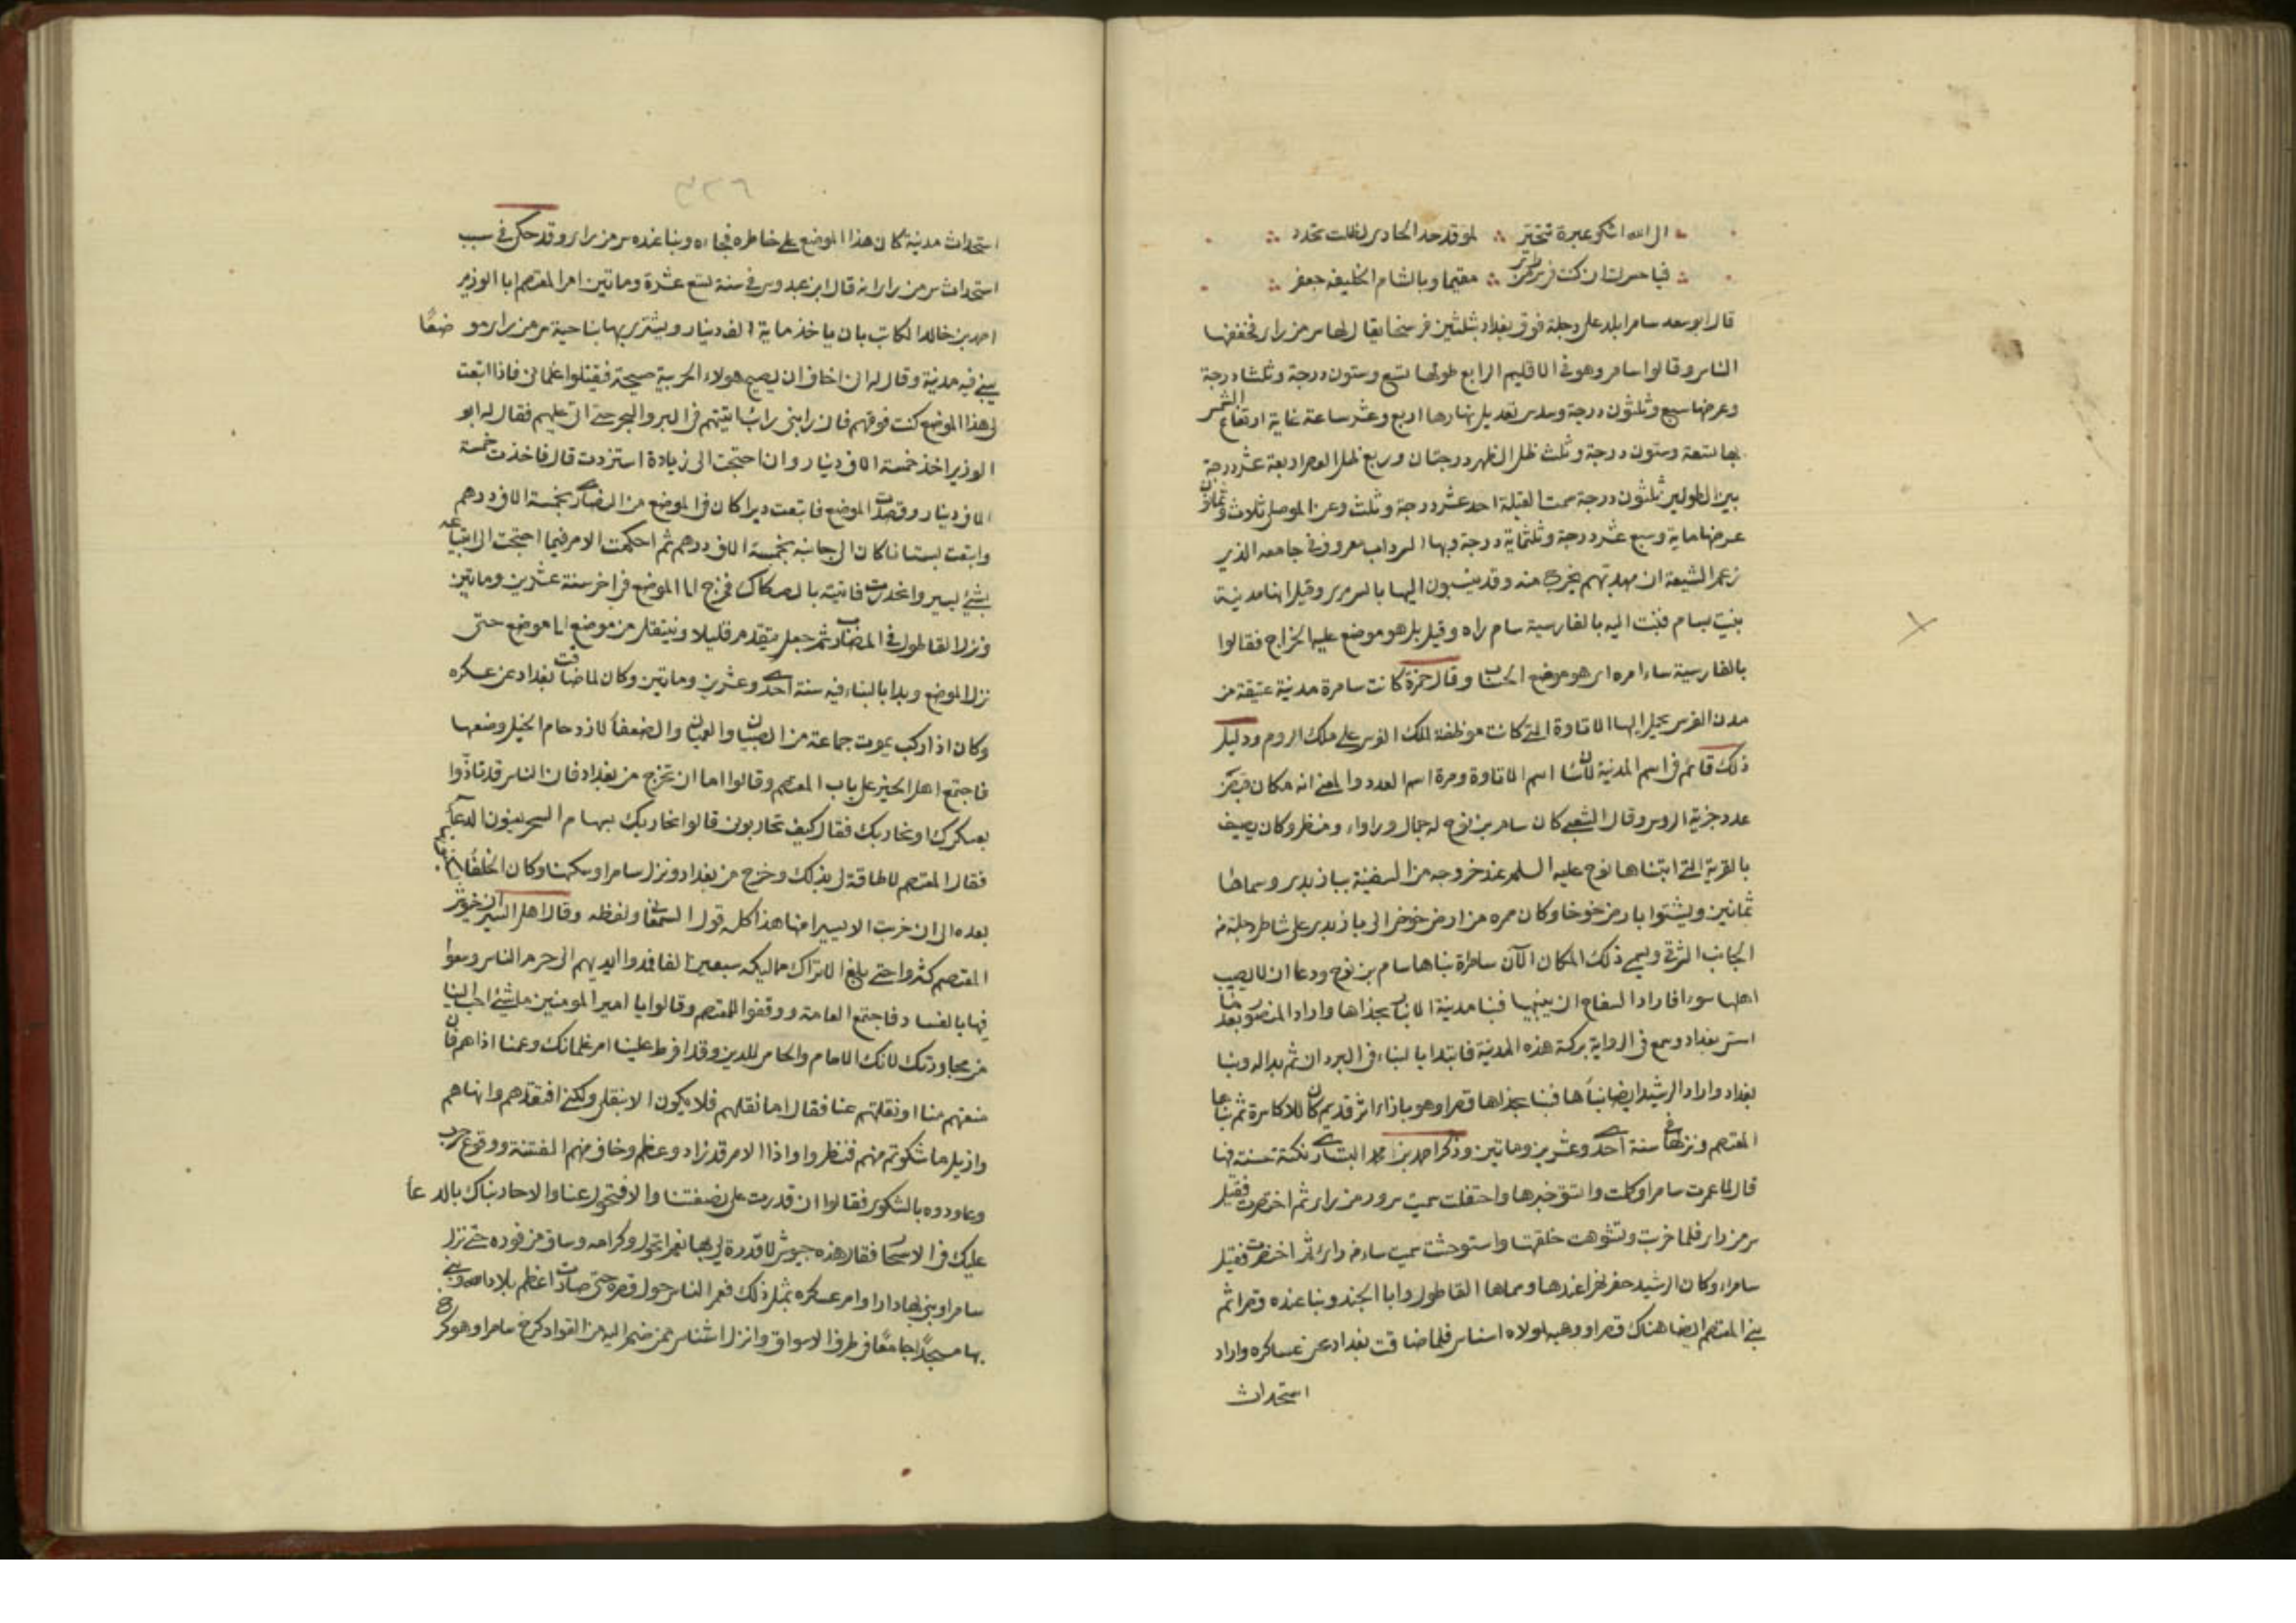 الى الله اشكو عبرة تتحير ∴ لو قد حدا الحادى لظلت تحدر
فيا حسرتا ان كنت فى سر من را ∴ مقيما وبالشام الخليفه جعفر
قال ابو سعد سامرا بلد على دجلة فوق بغداد بثلثين فرسخا يقال لها سر من راى فخففها
الناس وقالوا سامر وهو فى الاقليم الرابع طولها تسع وستون درجة وثلثا درجة
وعرضها سبع وثلثون درجة وسدس تعديل نهارها اربع وعشر ساعة غاية ارتفاع الشمس
بها تسعة وستون درجة وثلث ظل الظهر درجتان وربع ظل العصر اربعة عشر درجة
بين الطولين ثلثون درجة سمت القبلة احد عشر درجة وثلث وعن الموصل ثلاث وثمانون
عرضها ماية وسبع عشر درجة وثلثماية درجة وبها السرداب معروف فى جامعه الذى
زعم الشيعة ان مهديهم يخرج منه وقد ينسبون اليها بالسرمرى وقيل انها مدينة
بنيت بسام فنبت اليه بالفارسية سام راه وقيل بل هو موضع عليه الخراج فقالوا
بالفارسية ساء امره اى هو موضع الحساب وقال حمزة كانت سامرة مدينة عتيقة من
مدن الفرس يحمل اليها الاتاوة التى كانت موظفة لملك الفرس على ملك الروم ودليل
ذلك قائم فى اسم المدينة لان سا اسم الاتاوة ومرة اسم العدد والمعنى انه مكان قبض
عدد جزية الروس وقال الشعبى كان سام بن نوح له جمال ورواء ومنظر وكان يصيف
بالقرية التى ابتناها نوح عليه السلم عند خروجه من السفينة ببازبدى وسماها
ثمانين ويشتوا بارض خوخا وكان ممره من ارض خوخى الى بازبدى على شاطى دجلة من
الجانب الشرقى ويسمى ذلك المكان الآن سامرة بناها سام بن نوح ودعا ان لا يصيب
اهلها سوء فاراد السفاح ان يبنيها فبنا مدينة الانبار بحذاها واراد المنصور بعد
استر بغداد وسمع فى الرواية بركة هذه المدينة فابتدا بالبناء فى البردان ثم بدا له وبنا
بغداد واراد الرشيد ايضا بناها فبنا بحذاها قصرا وهو بازاء اثر قديم كان للاكاسرة ثم بناها
المعتصم ونزلها فى سنة احدى وعشرين وماتين وذكر احمد بن محمد البشارى نكتة حسنة فيها
قال لما عمرت سامرا وكملت واتسق خبرها واحتفلت سميت سرور من راى ثم اختصرت فقيل
سر من راى فلما خربت وتشوهت خلقتها واستوحشت سميت ساء من راى ثم اختصرت فقيل
سامراء وكان الرشيد حفر نهرا عندها وسماها القاطول وابا الجند وبنا عنده قصرا ثم
بنى المعتصم ايضا هناك قصرا ووهبه لمولاه اشناس فلما ضاقت بغداد عن عساكره واراد
استحداث
٣٢٦
استحداث مدينة كان هذا الموضع على خاطره فجاءه وبنا عنده سر من راى وقد حكى فى سبب
استحداث سر من راى انه قال ابن عبدوس فى سنة تسع عشرة وماتين امر المعتصم ابا الوزير
احمد بن خالد الكاتب بان ياخذ ماية الف دينار ويشترى بها بناحية سر من راى موضعًا
يبنى فيه مدينة وقال له انى اخاف ان يصيح هولاء الحربية صيحة فيقتلوا غلمانى فاذا ابتعت
لى هذا الموضع كنت فوقهم فان رابنى رائب اتيتهم فى البر والبحر حتى اتى عليهم فقال له ابو
الوزير اخذ خمسة الاف دينار وان احتجت الى زيادة استزدت قال فاخذت خمسة
الاف دينار وقصدت الموضع فابتعت ديرا كان فى الموضع من النصارى بخمسة الاف درهم
وابتعت بستانا كان الى جانبه بخمسة الاف درهم ثم احكمت الامر فيما احتجت الى ابتياعه
بشئ يسير وانحدرت فاتيته بالصكاك فخرج الى الموضع فى اخر سنة عشرين وماتين
ونزل القاطول فى المضارب ثم جعل يتقدم قليلا وينتقل من موضع الى موضع حتى
نزل الموضع وبدا بالبناء فيه سنة احدى وعشرين وماتين وكان لما ضاقت بغداد عن عسكره
وكان اذا ركب يموت جماعة من الصبيان والعميان والضعفا لازدحام الخيل وضعها
فاجتمع اهل الخير على باب المعتصم وقالوا اما ان تخرج من بغداد فان الناس قد تاذوا
بعسكرك او نحاربك فقال كيف تحاربون قالوا نحاربك بسهام السحر يعنون الدعا عليه
فقال المعتصم لا طاقة لى بذلك وخرج من بغداد ونزل سامرا وسكنها وكان الخلفا
بعده الى ان خربت الا يسيرا منها هذا كله قول السمعانى ولفظه وقال اهل السير ان جيوش
المعتصم كثروا حتى بلغ الاتراك مماليكه سبعين الفا فمدوا ايديهم الى حرم الناس وسعوا
فيها بالفساد فاجتمع العامة ووقفوا للمعتصم وقالوا يا امير المومنين ما شئ احب الينا
من مجاورتك لانك الامام والحامى للدين وقد افرط علينا امر غلمانك وعمنا اذاهم فان
منعتهم منا او نقلتهم عنا فقال اما نقلهم فلا يكون الا بنقلى ولكنى افتقدهم وانهاهم
وازيل ما شكوتم منهم فنظروا واذا الامر قد زاد وعظم وخاف منهم الفتنة ووقوع حرب
وعاودوه بالشكوى فقالوا ان قدرت على نصفتنا والا فتحول عنا والا حاربناك بالدعا
عليك فى الاسحار فقال هذه جيوش لا قدرة لى بها نعم اتحول وكرامه وساق من فوره حتى نزل
سامرا وبنى بها دارا وامر عسكره بمثل ذلك فعمر الناس حول قصره حتى صارت اعظم بلاد الله وبنى
بها مسجدًا جامعًا فى طرف الاسواق وانزل اشناس بمن ضم اليه من القواد كرخ سامرا وهو كر